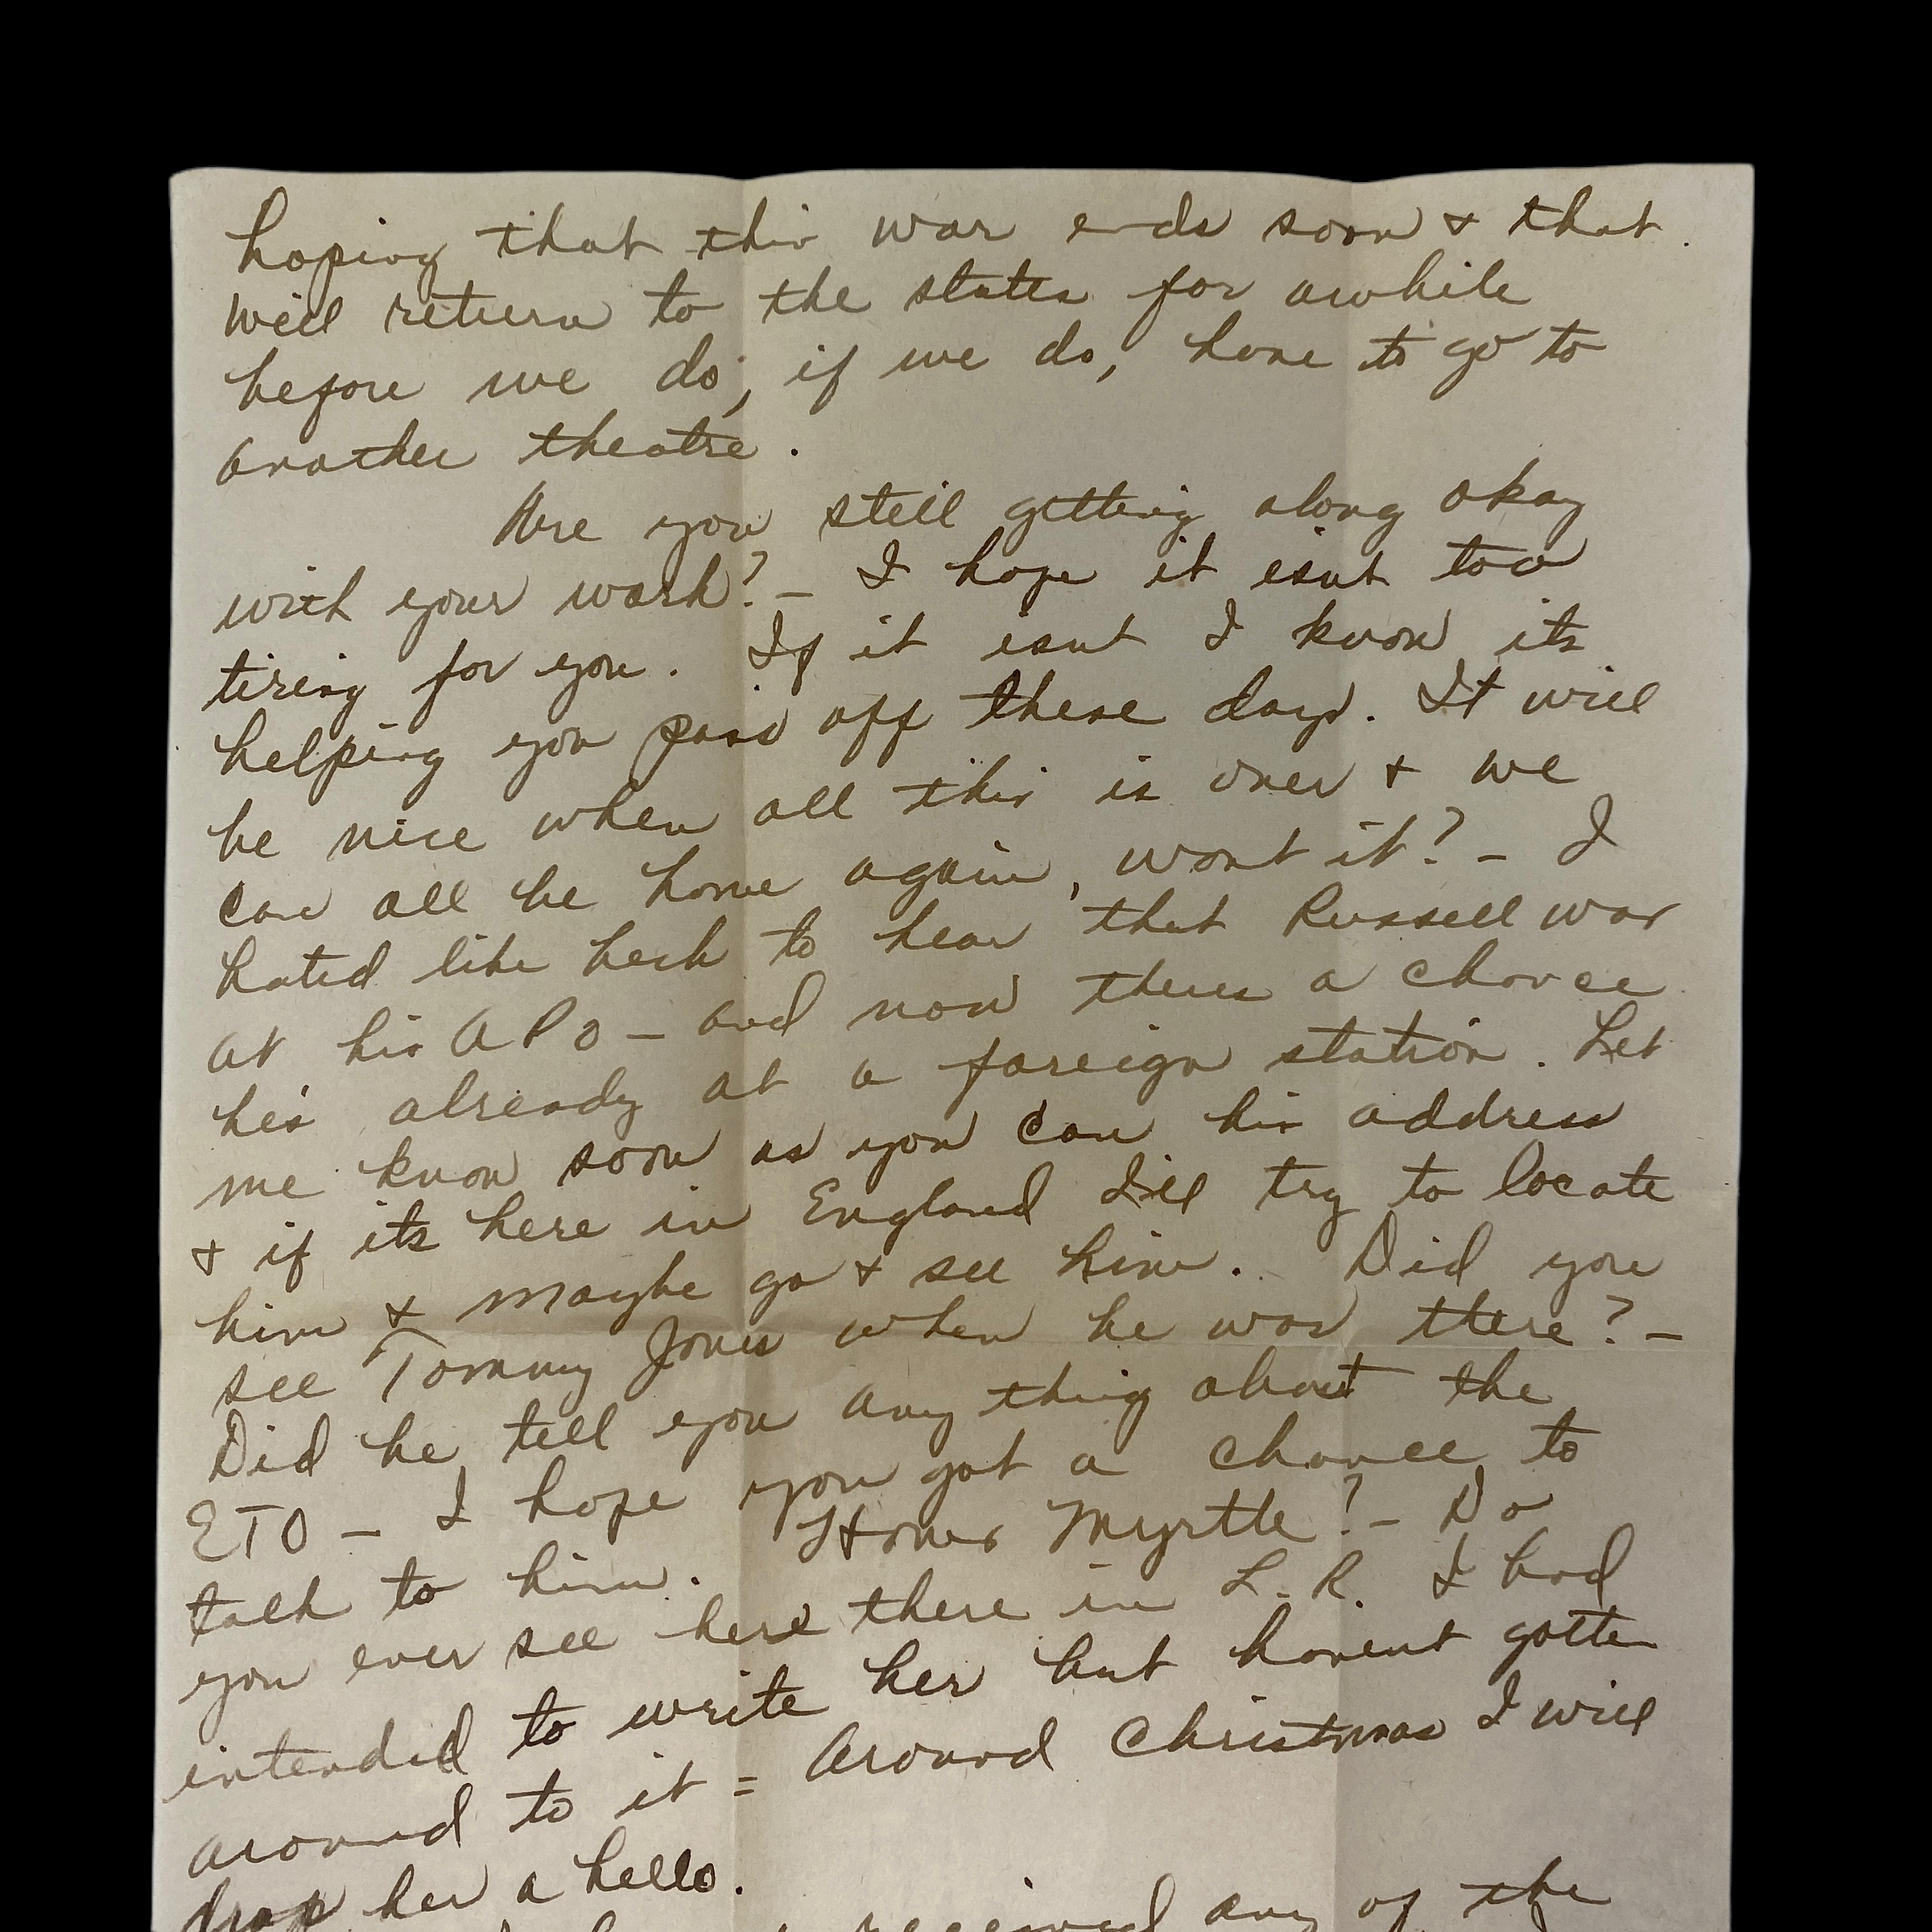 hoping that this war ends soon & that
we'll return to the states for awhile
before we do, if we do, have to go to
another theatre.
Are you still getting along okay
with your work? – I hope it isnt too
tiring for you. If it isnt I know its
helping you pass off these days. It will
be nice when all this is over & we
can all be home again, wont it? – I
hated like heck to hear that Russell was
at his APO – and now theres a chance
he's already at a foreign station. Let
me know soon as you can his address
& if its here in England I'll try to locate
him & maybe go & see him. Did you
see Tommy Jones when he was there? –
Did he tell you anything about the
ETO – I hope you got a chance to
talk to him. Hows Myrtle? – Do
you ever see here there in L.R. I had
intended to write her but havent gotten
around to it = Around Christmas I will
drop her a hello.
received any of the